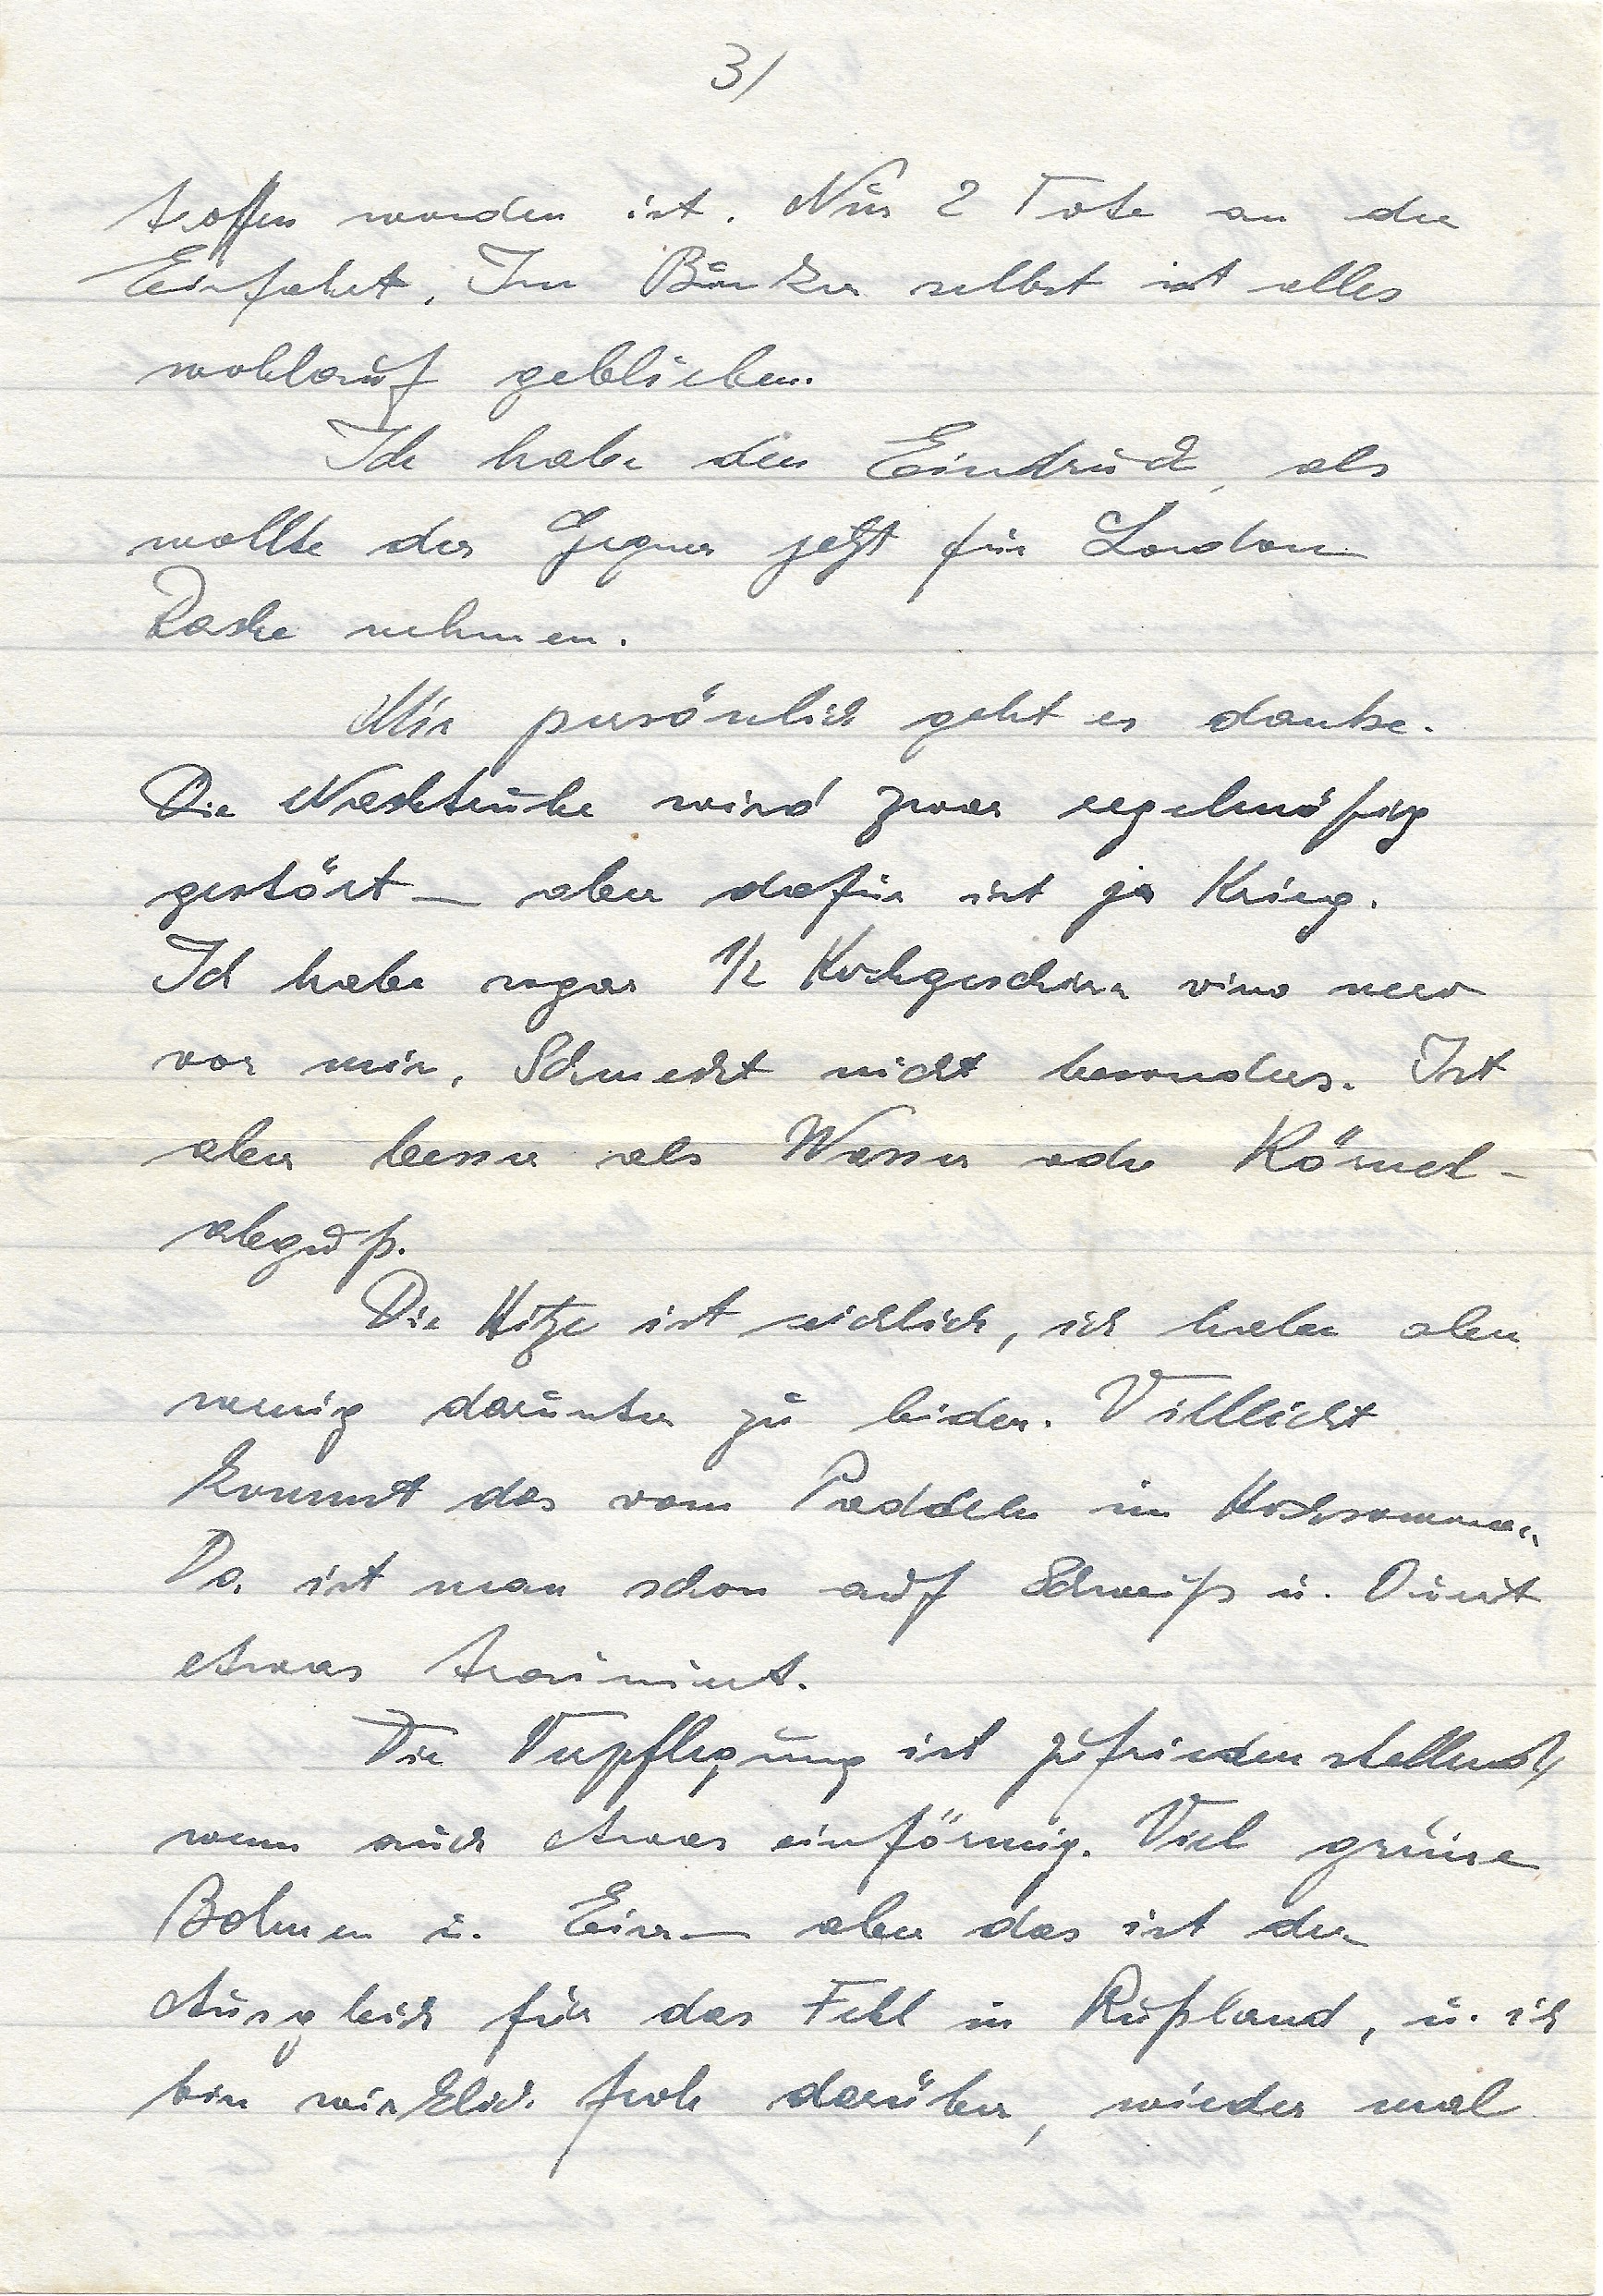 3/
troffen worden ist. Nur 2 Tote an der
Einfahrt. Im Bunker selbst ist alles
wohlauf geblieben.
Ich habe den Eindruck, als
wollte der Gegner jetzt für London
Rache nehmen.
Mir persönlich geht es danke.
Die Nachtruhe wird zwar regelmäßig
gestört — aber dafür ist ja Krieg.
Ich habe sogar 1/2 Kochgeschirr vino nero
vor mir. Schmeckt nicht besonders. Ist
aber besser als Wasser oder
abguß.
Die Hitze ist reichlich, ich habe aber
wenig darunter zu leiden. Vielleicht
kommt das vom Paddeln im Hochsommer.
Da ist man schon auf Schweiß u. Durst
etwas trainiert.
Die Verpflegung ist zufriedenstellend,
wenn auch etwas einförmig. Viel grüne
Bohnen u. Eier — aber das ist der
Ausgleich für das Fehl in Rußland, u. ich
bin wirklich froh darüber, wieder mal